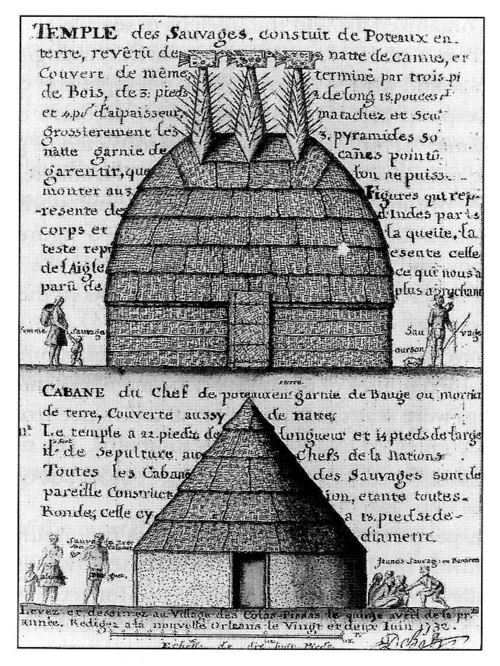 TEMPLE des Sauvages, constuit de Poteaux en
terre, revêtû de natte de Cannes, et
Couvert de même, terminé par trois pi
de Bois, de 3. pieds de long 18. pouces
et 4. po d'aipaisseur, matachez et Scu
grossierement les 3. pyramides so
natte garnie de cañes pointû
garentir, que l'on ne puiss
monter au 3 Figures qui rep
-resente de d'Indes par le
corps et la queüe, la
teste rep esente celle
de l'Aigle ce qui nous a
parû de plus aprochant
Femme Sauvage
Sau vage
CABANE du Chef de poteaux en terre garnie de Bauge ou mortier
de terre, Couverte aussy de natte,
Le temple a 22. pieds de longueur et 14 pieds de large
il sert de Sepulture, aux Chefs de la Nation
Toutes les Cabane des Sauvages sont de
pareille Construct ion, etante toutes-
Ronde; Celle cy a 18. pieds de-
diametre
Jeunes Sauvag
Levez et dessinez au Village des Colas-Pissas le quinze avril de la pr.
année. Redigez a la nouvelle Orleans le Vingt et deux Juin 1732.
Echelle de dix huit Pieds